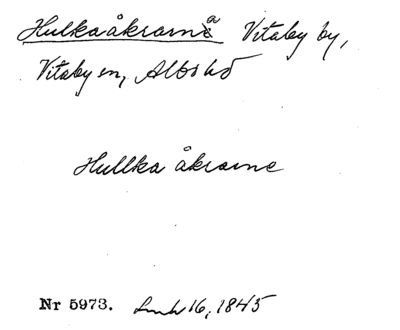 Hulkaåkrarna Vitaby by,
Vitaby sn, Albo hd
Hullka åkrarne
Nr 5973. Lmh 16, 1845